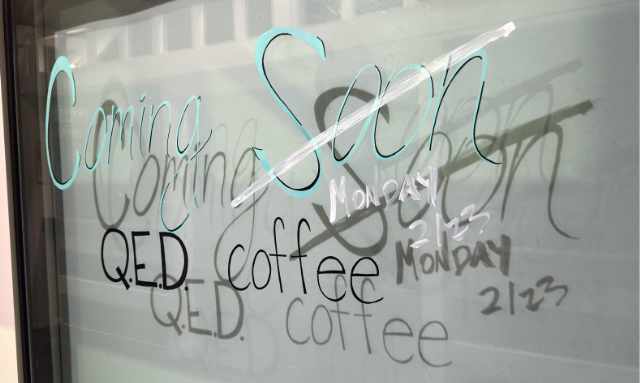 Coming Soon
MONDAY
2/23
Q.E.D. coffee